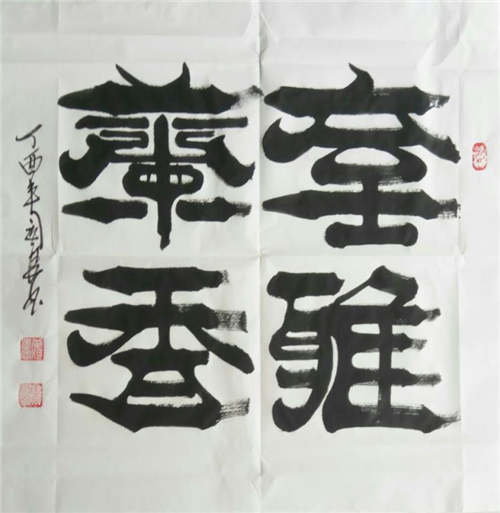 室雅
蘭香
丁酉年